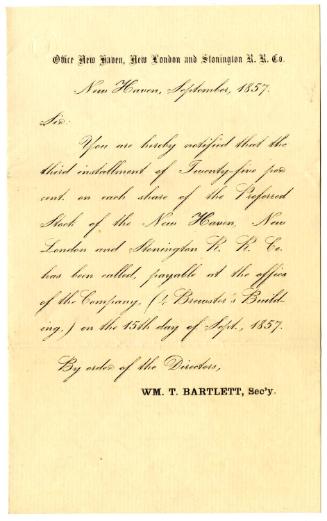 Office New Haven, New London and Stonington R. R. Co.
New Haven, September, 1857.
Sir:
You are hereby notified that the
third installment of Twenty-five per
cent. on each share of the Preferred
Stock of the New Haven, New
London and Stonington R. R. Co.
has been called, payable at the office
of the Company, (Brewster's Build-
ing,) on the 15th day of Sept., 1857.
By order of the Directors,
WM. T. BARTLETT, Sec'y.